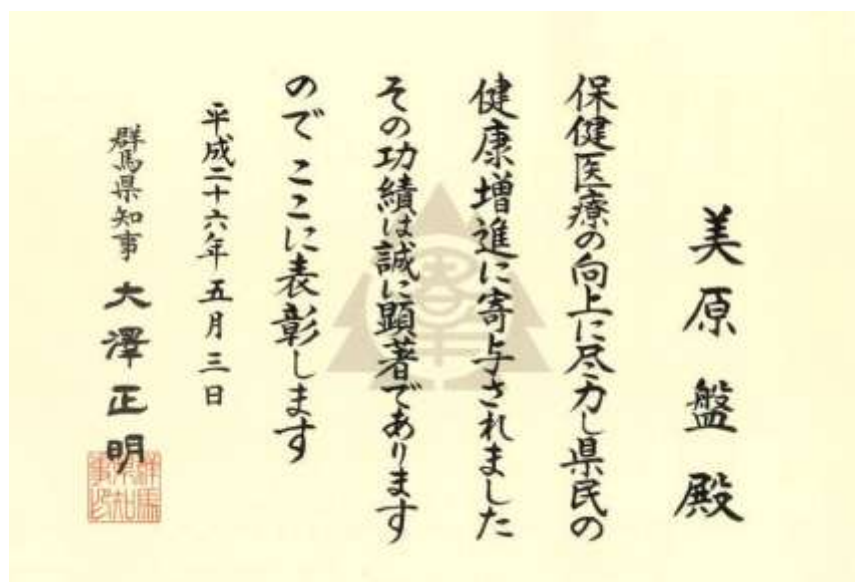 美原盤殿
保健医療の向上に尽力し県民の
健康増進に寄与されました
その功績は誠に顕著であります
のでここに表彰します
平成二十六年五月三日
群馬県知事 大澤正明
群馬県知事印